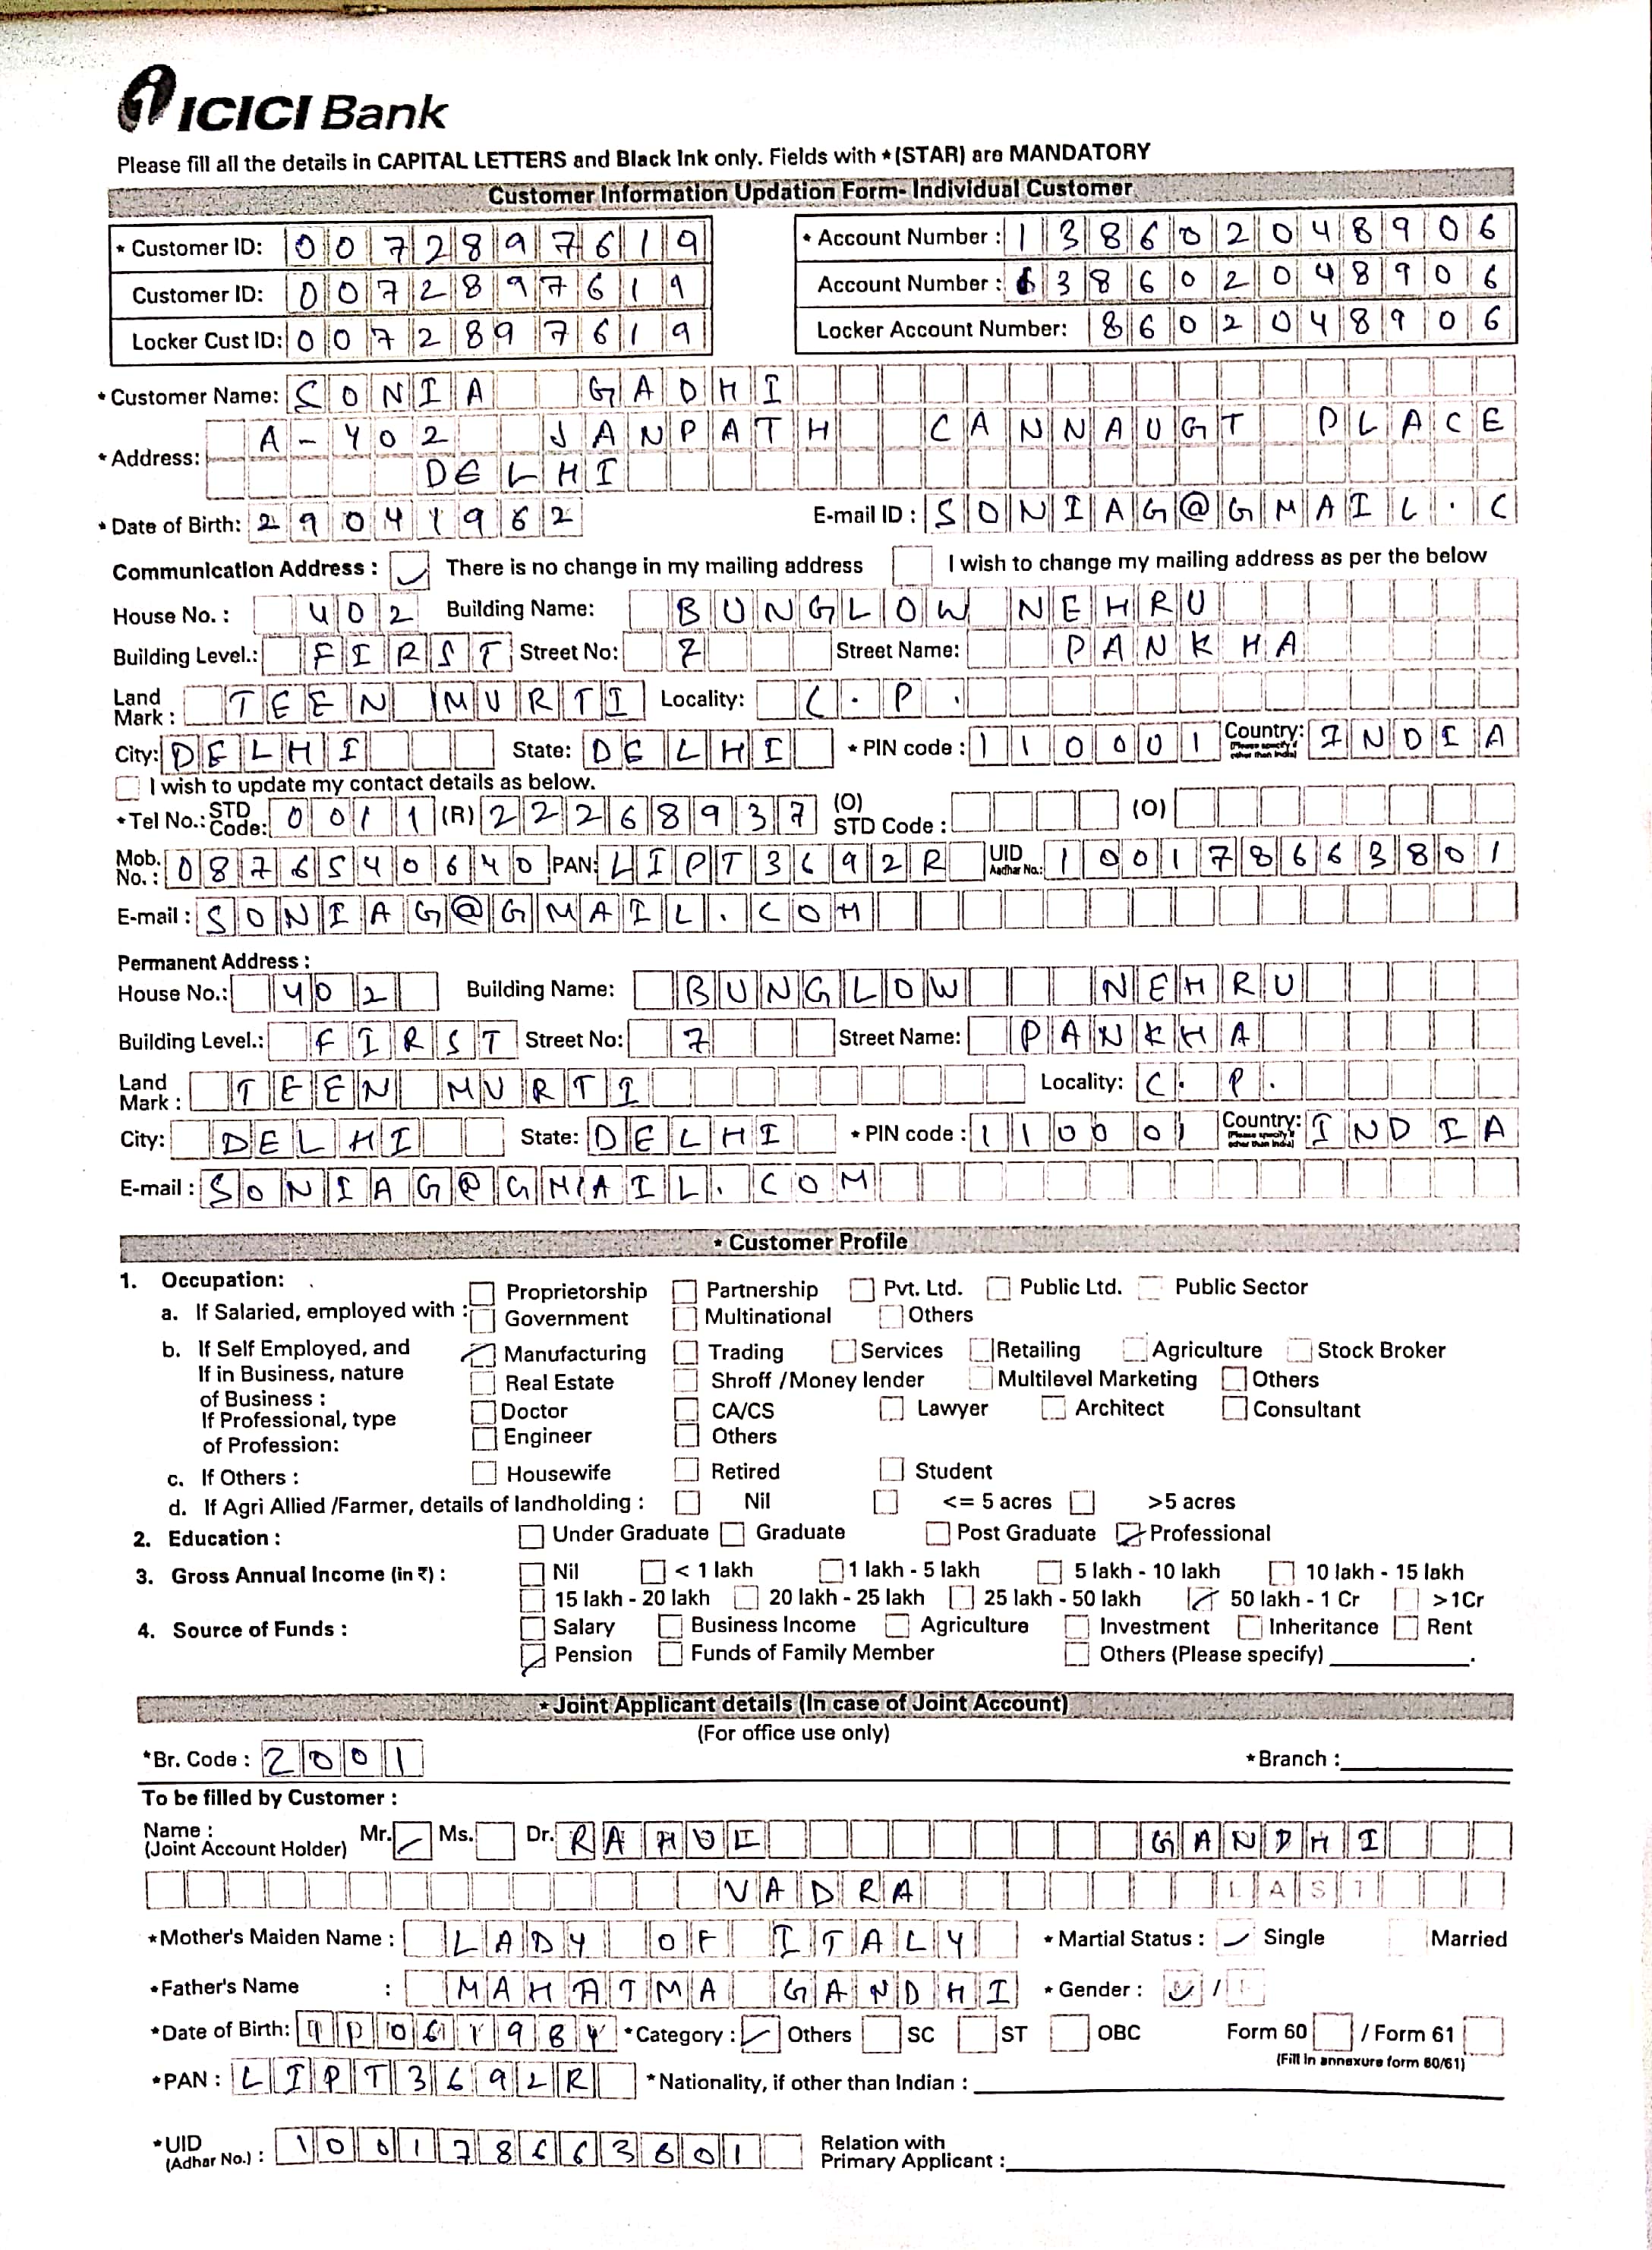 ICICI Bank
Please fill all the details in CAPITAL LETTERS and Black Ink only. Fields with *(STAR) are MANDATORY
Customer Information Updation Form- Individual Customer
* Customer ID: 0072897619 * Account Number : 138602048906
Customer ID: 0072897619 Account Number : 138602048906
Locker Cust ID: 0072897619 Locker Account Number: 8602048906
* Customer Name: SONIA GADHI
* Address: A-402 JANPATH CANNAUGT PLACE
DELHI
* Date of Birth: 29041962 E-mail ID : SONIAG@GMAIL.C
Communication Address : There is no change in my mailing address I wish to change my mailing address as per the below
House No. : 402 Building Name: BUNGLOW NEHRU
Building Level.: FIRST Street No: 7 Street Name: PANKHA
Land Mark : TEEN MURTI Locality: C.P.
City: DELHI State: DELHI * PIN code : 110001 Country: (Please specify if other than India) INDIA
I wish to update my contact details as below.
*Tel No.: STD Code: 0011 (R) 22268937 (O) STD Code : (O)
Mob. No. : 0876540640 PAN: LIPT3692R UID Aadhar No.: 100178663801
E-mail : SONIAG@GMAIL.COM
Permanent Address :
House No.: 402 Building Name: BUNGLOW NEHRU
Building Level.: FIRST Street No: 7 Street Name: PANKHA
Land Mark : TEEN MURTI Locality: C.P.
City: DELHI State: DELHI * PIN code : 110001 Country: (Please specify if other than India) INDIA
E-mail : SONIAG@GMAIL.COM
* Customer Profile
1. Occupation:
a. If Salaried, employed with : Proprietorship Partnership Pvt. Ltd. Public Ltd. Public Sector
Government Multinational Others
b. If Self Employed, and Manufacturing Trading Services Retailing Agriculture Stock Broker
If in Business, nature Real Estate Shroff /Money lender Multilevel Marketing Others
of Business :
If Professional, type Doctor CA/CS Lawyer Architect Consultant
of Profession: Engineer Others
c. If Others : Housewife Retired Student
d. If Agri Allied /Farmer, details of landholding : Nil <= 5 acres >5 acres
2. Education : Under Graduate Graduate Post Graduate Professional
3. Gross Annual Income (in ₹) : Nil < 1 lakh 1 lakh - 5 lakh 5 lakh - 10 lakh 10 lakh - 15 lakh
15 lakh - 20 lakh 20 lakh - 25 lakh 25 lakh - 50 lakh 50 lakh - 1 Cr >1Cr
4. Source of Funds : Salary Business Income Agriculture Investment Inheritance Rent
Pension Funds of Family Member Others (Please specify)
* Joint Applicant details (In case of Joint Account)
(For office use only)
*Br. Code : 2001 *Branch :
To be filled by Customer :
Name : (Joint Account Holder) Mr. Ms. Dr. GANDHI
VADRA LAST
*Mother's Maiden Name : LADY OF ITALY * Martial Status : Single Married
*Father's Name : MAHATMA GANDHI * Gender : /
*Date of Birth: *Category : Others SC ST OBC Form 60 / Form 61
(Fill in annexure form 60/61)
*PAN : LIPT3692R *Nationality, if other than Indian :
*UID (Adhar No.) : Relation with Primary Applicant :